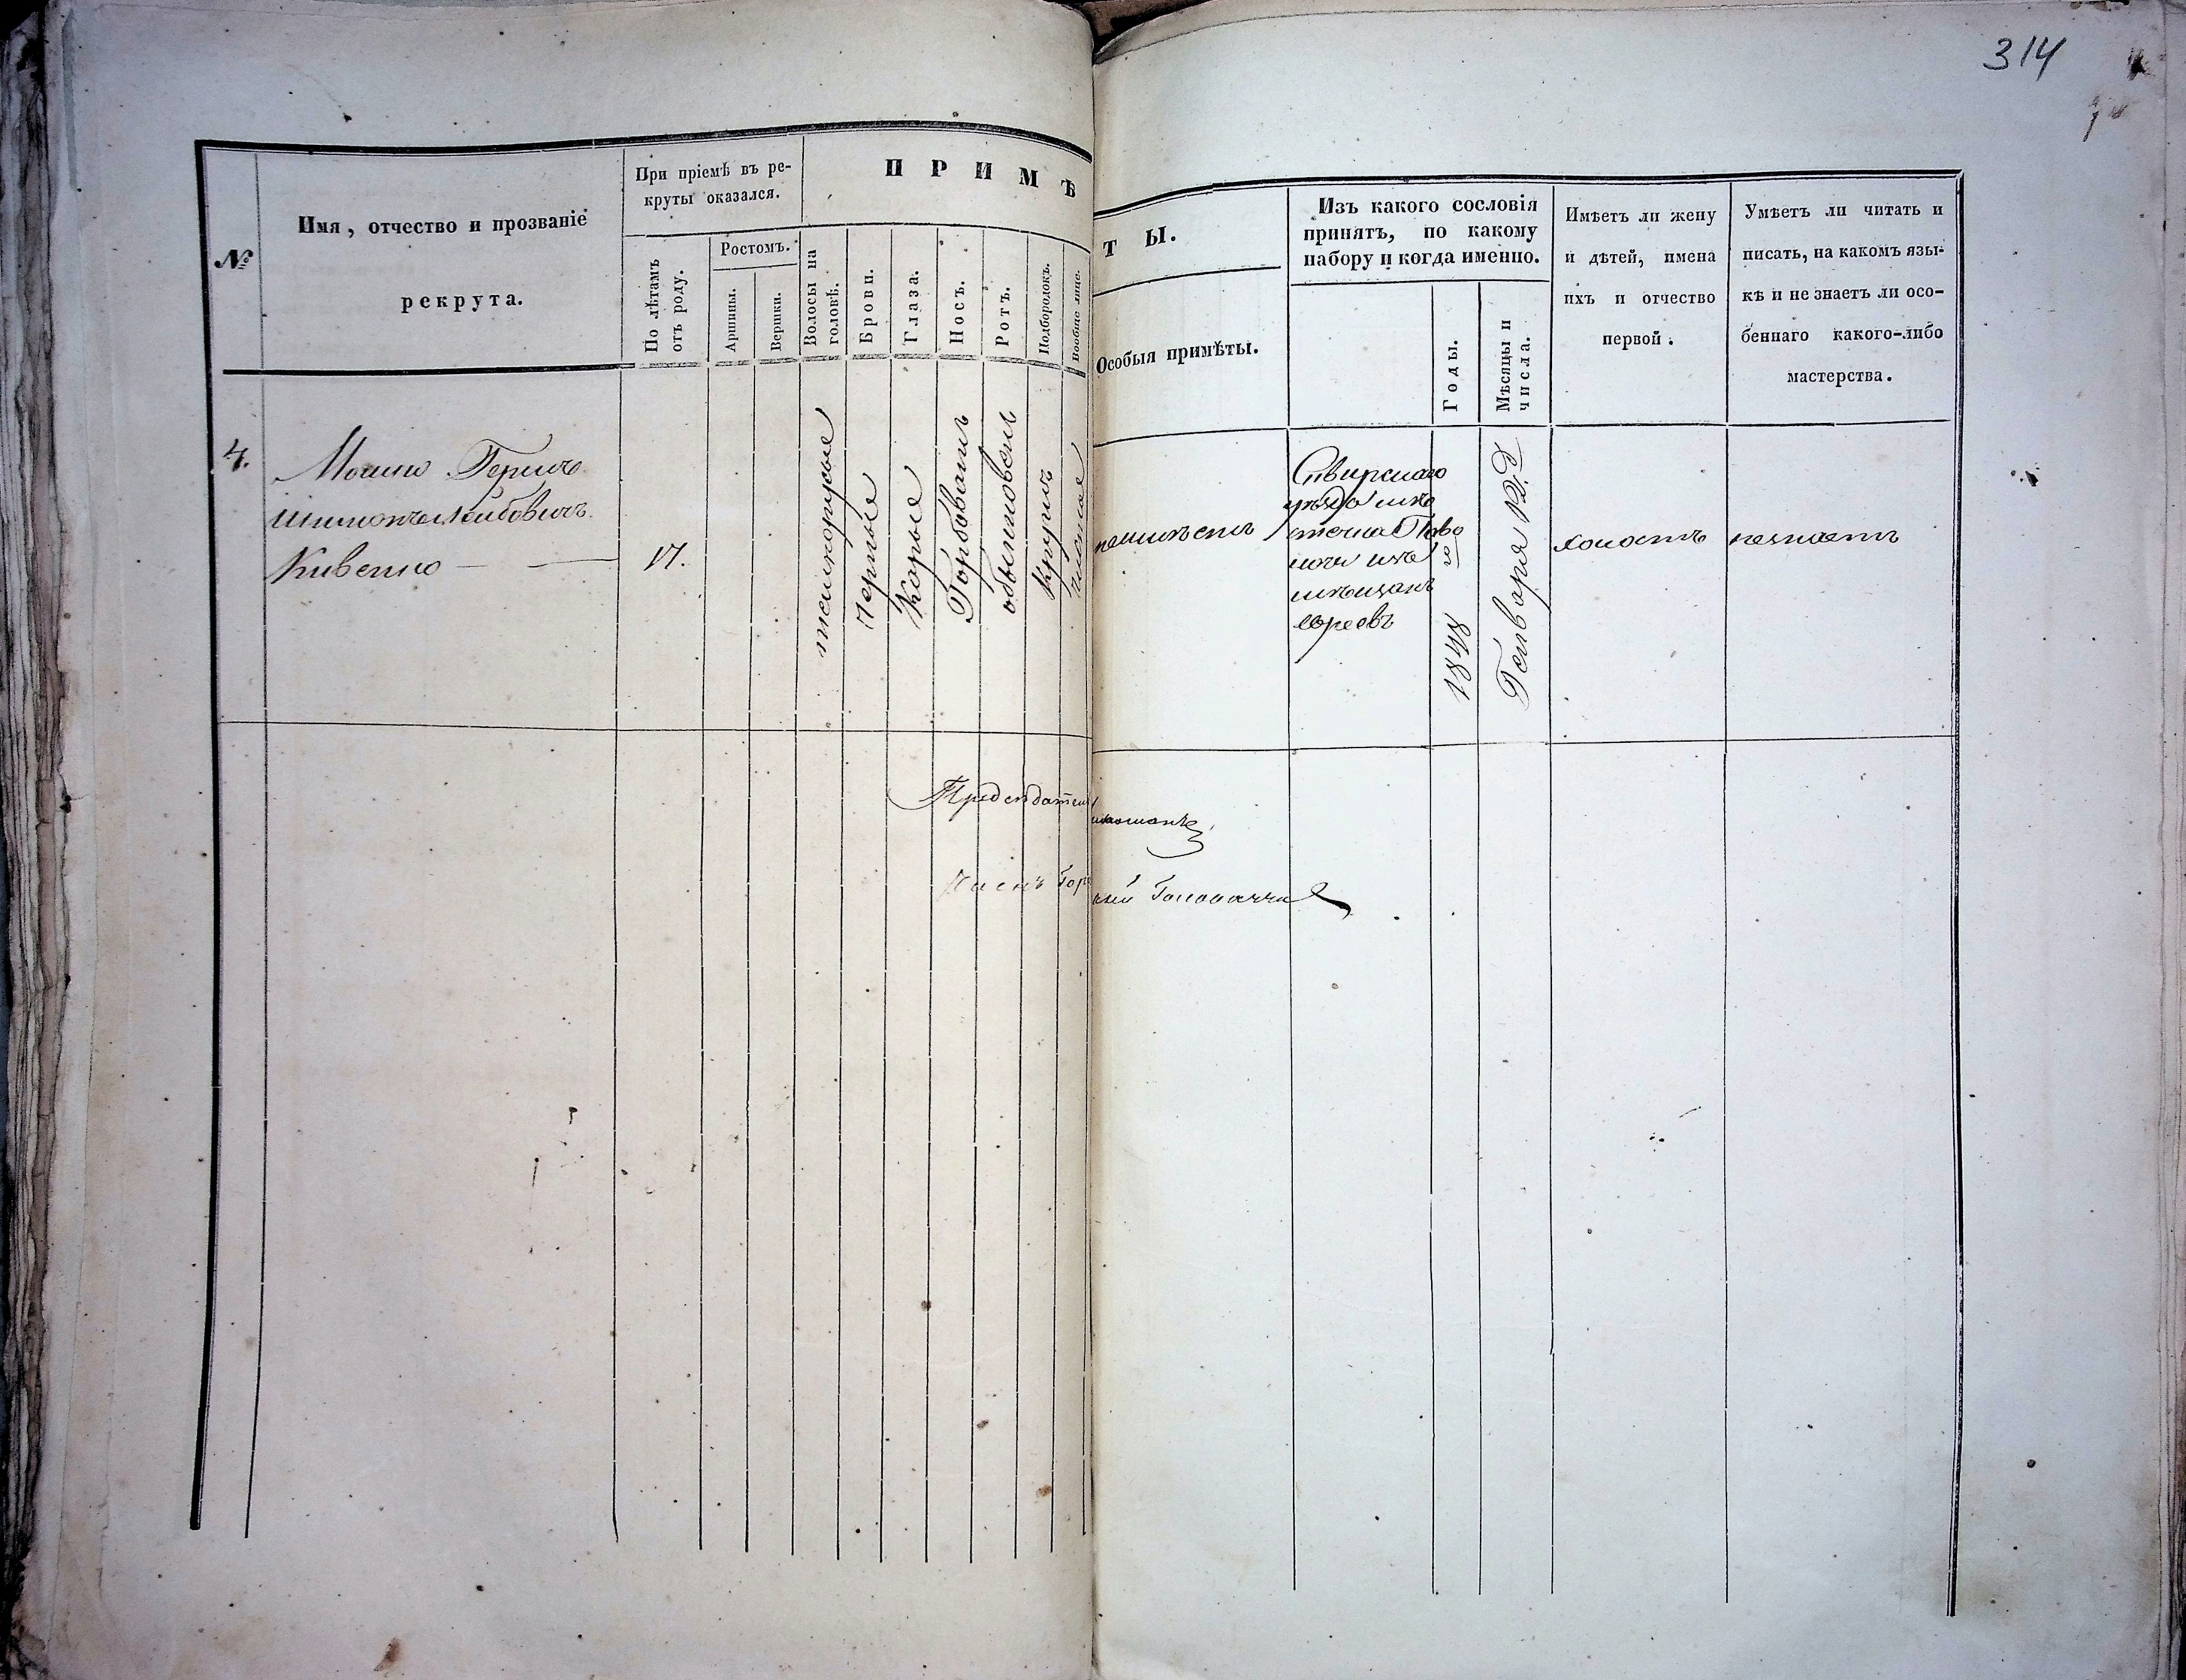 314
№
Имя, отчество и прозваніе
рекрута.
При пріемѣ въ ре-
круты оказался.
По лѣтамъ
отъ роду.
Ростомъ.
Аршины.
Вершки.
ПРИМѢ
Волосы на
головѣ.
Брови.
Глаза.
Носъ.
Ротъ.
Подбородокъ.
Вообще лице.
ТЫ.
Особыя примѣты.
Изъ какого сословія
принятъ, по какому
набору и когда именно.
Годы.
Мѣсяцы и
числа.
Имѣетъ ли жену
и дѣтей, имена
ихъ и отчество
первой.
Умѣетъ ли читать и
писать, на какомъ язы-
кѣ и не знаетъ ли осо-
беннаго какого-либо
мастерства.
4.
Мошко Гершко
Кивенко
17.
темнорусые
черные
Карые
Горбоватъ
обыкновенъ
Круглъ
чистое
неимѣетъ
Сквирскаго
уѣзда мѣ
течка Паво
лочи изъ
мѣщанъ
евреевъ
1848
Генваря 12. Д
холостъ
незнаетъ
Председатель
Членъ